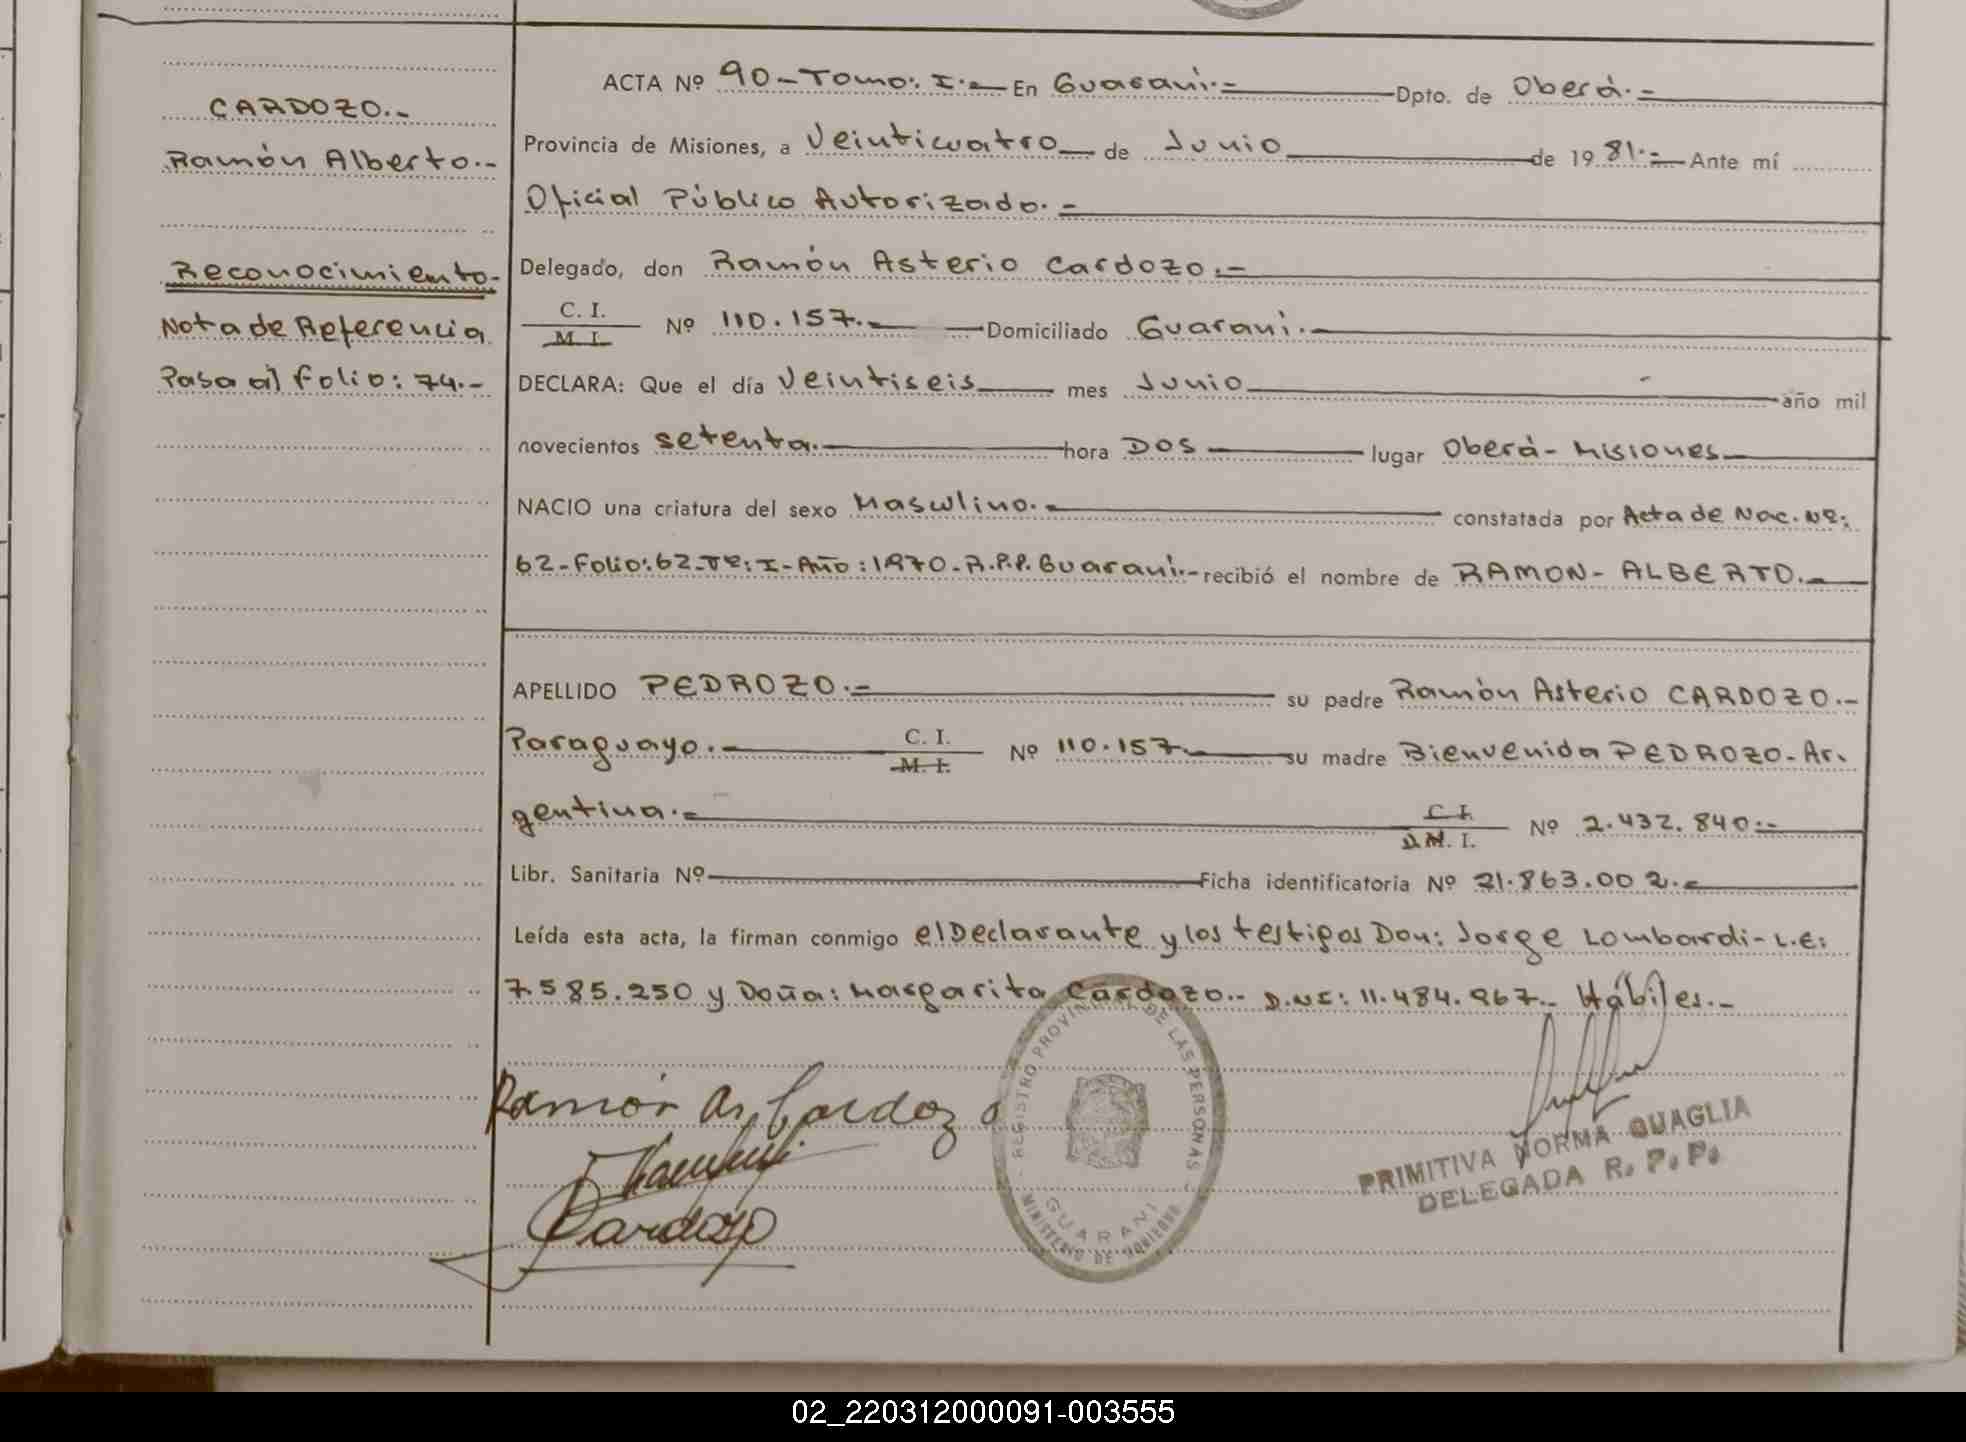 CARDOZO.-
Ramón Alberto.-
Reconocimiento-
Nota de Referencia
Pasa al folio: 74.-
ACTA Nº 90-Tomo: I.- En Guaraní.- Dpto. de Oberá.-
Provincia de Misiones, a Veinticuatro de Junio de 1981.- Ante mí
Oficial Público Autorizado.-
Delegado, don Ramón Asterio Cardozo.-
C. I.
M. I. Nº 110.157.- Domiciliado Guaraní.-
DECLARA: Que el día Veintiseis mes Junio año mil
novecientos setenta.- hora DOS lugar Oberá- Misiones
NACIO una criatura del sexo Masculino.- constatada por Acta de Nac. Nº:
62-Folio:62-Tº:I-Año:1970-R.P.P. Guaraní.- recibió el nombre de RAMON- ALBERTO.-
APELLIDO PEDROZO.- su padre Ramón Asterio CARDOZO.-
Paraguayo.- C. I.
M. I. Nº 110.157.- su madre Bienvenida PEDROZO- Ar.
gentina.- C. I.
D.M. I. Nº 2.432.840.-
Libr. Sanitaria Nº Ficha identificatoria Nº 21.863.002.-
Leída esta acta, la firman conmigo el Declarante y los testigos Don: Jorge Lombardi- L.E:
7.585.250 y Doña: Margarita Cardozo.- D.N.I: 11.484.967.- Hábiles.-
Ramón As. Cardozo
Cardozo
REGISTRO PROVINCIAL DE LAS PERSONAS
GUARANI
MINISTERIO DE GOBIERNO
PRIMITIVA NORMA QUAGLIA
DELEGADA R. P. P.
02_220312000091-003555